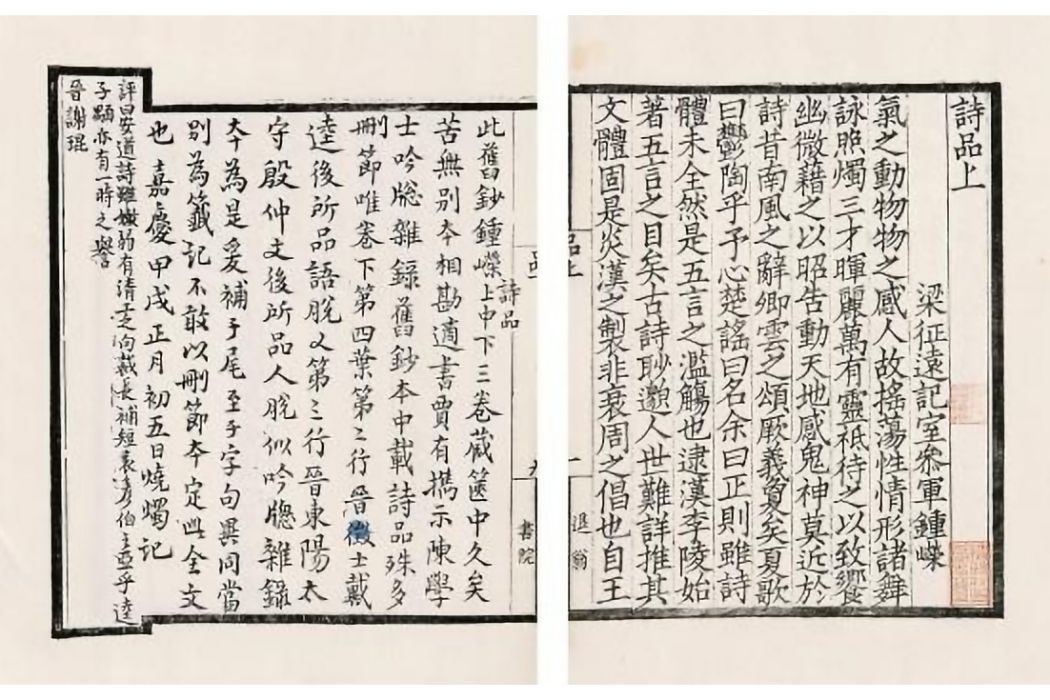 詩品上
梁征遠記室參軍鍾嶸
氣之動物物之感人故搖蕩性情形諸舞
詠照燭三才暉麗萬有靈祇待之以致饗
幽微藉之以昭告動天地感鬼神莫近於
詩昔南風之辭卿雲之頌厥義敻矣夏歌
曰鬱陶乎予心楚謠曰名余曰正則雖詩
體未全然是五言之濫觴也逮漢李陵始
著五言之目矣古詩眇邈人世難詳推其
文體固是炎漢之製非衰周之倡也自王
品上
退翁
書院
此舊鈔鍾嶸詩品上中下三卷藏篋中久矣
苦無別本相勘適書賈有攜示陳學
士吟牕雜錄舊鈔本中載詩品殊多
刪節唯卷下第四葉第二行晉徵士戴
逵後所品語脫又第三行晉東陽太
守殷仲文後所品人脫似吟牕雜錄
本為是爰補于尾至于字句異同當
別為籤記不敢以刪節本定此全文
也嘉慶甲戌正月初五日燒燭記
評曰安道詩雖嫩弱有清上之句裁長補短袁彥伯之亞乎逵
子顒亦有一時之譽
晉謝琨